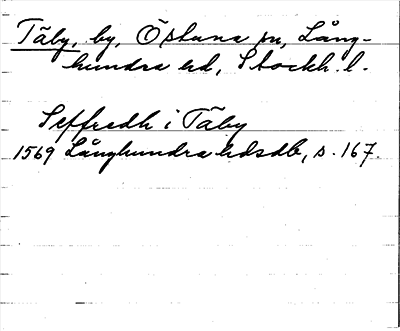 Täby, by, Östuna sn, Lång-
hundra hd, Stockh. l.
Seffredh i Täby
1569 Långhundra hdsdb, s. 167.